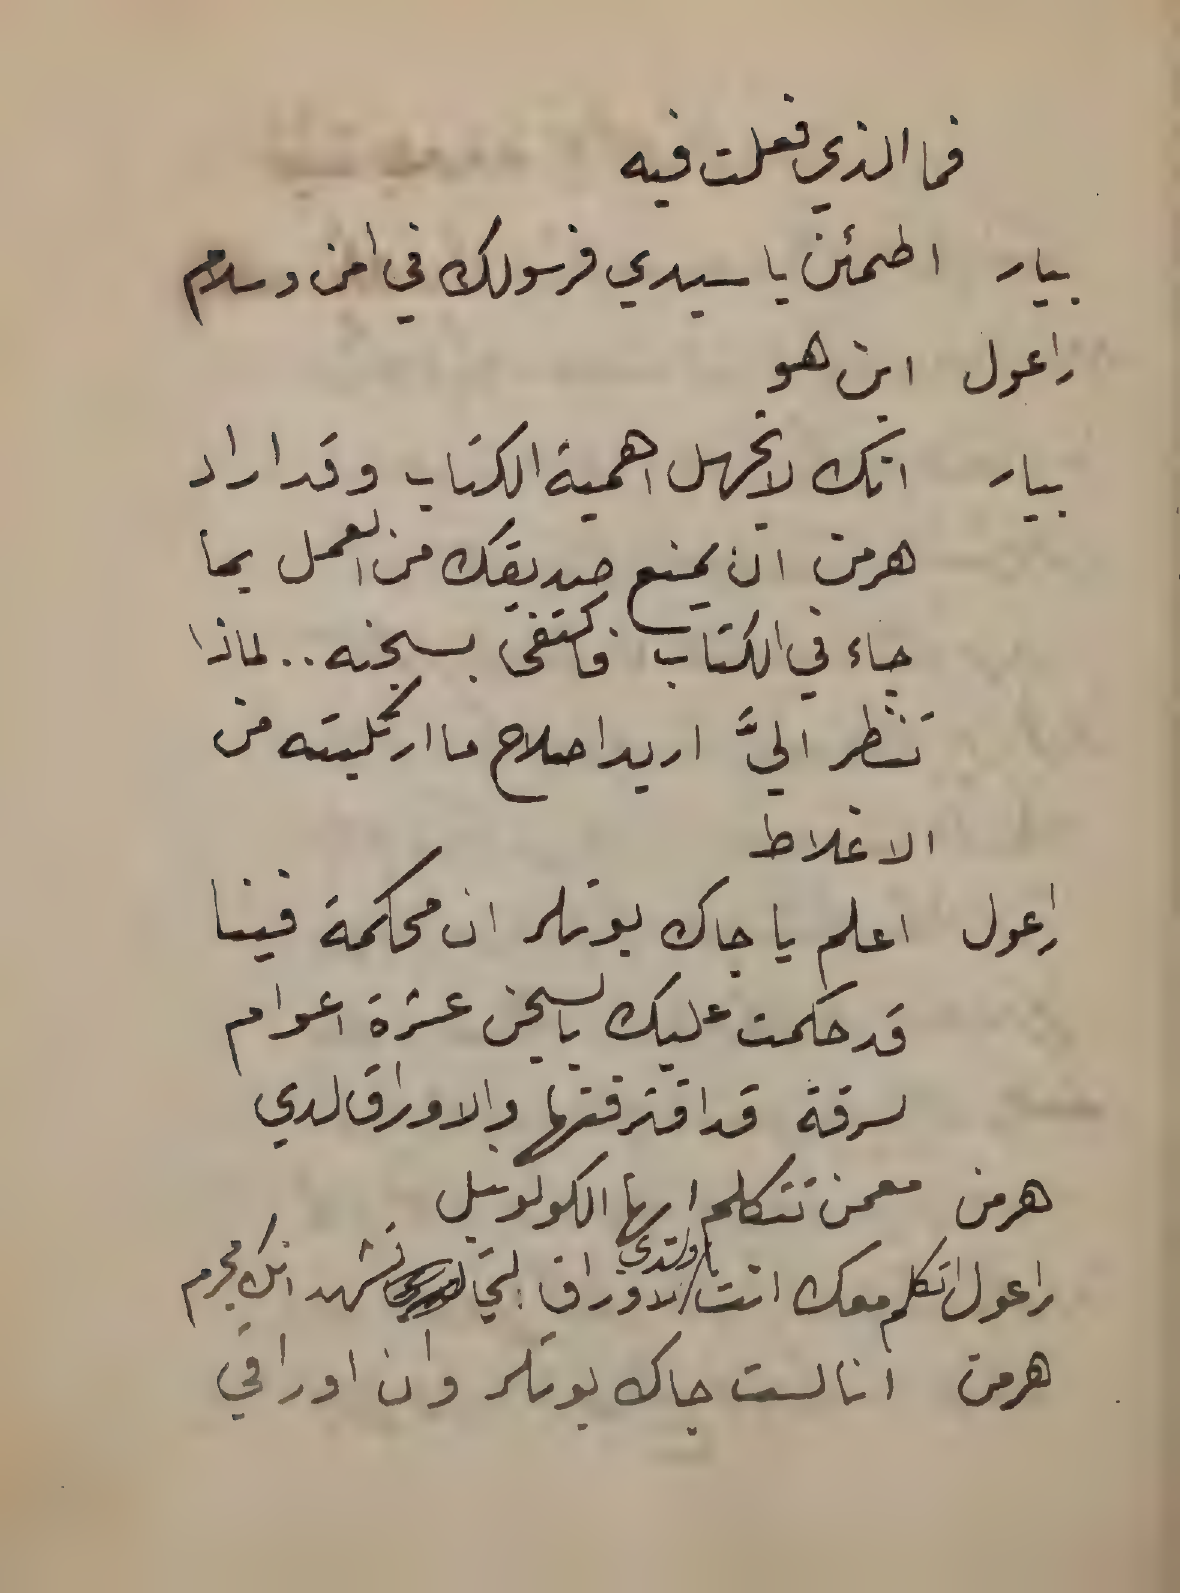 فما الذي فعلت فيه
بيار اطمئن يا سيدي فرسولك في امن وسلام
راعول اين هو
بيار انك لا تجهل اهمية الكتاب وقد اراد
هرمن ان يمنع صديقك من العمل بما
جاء في الكتاب فاكتفى بسجنه .. لماذا
تنظر اليَّ اريد اصلاح ما ارتكبته من
الاغلاط
راعول اعلم يا جاك بوتلر ان محكمة فينا
قد حكمت عليك بالسجن عشرة اعوام
لسرقة قد اقترفتها والاوراق لدي
هرمن معمن تتكلم ايها الكولونيل
راعول اتكلم معك انت ولدي الاوراق التي تشهد انك مجرم
هرمن انا لست جاك بوتلر وان اوراقي